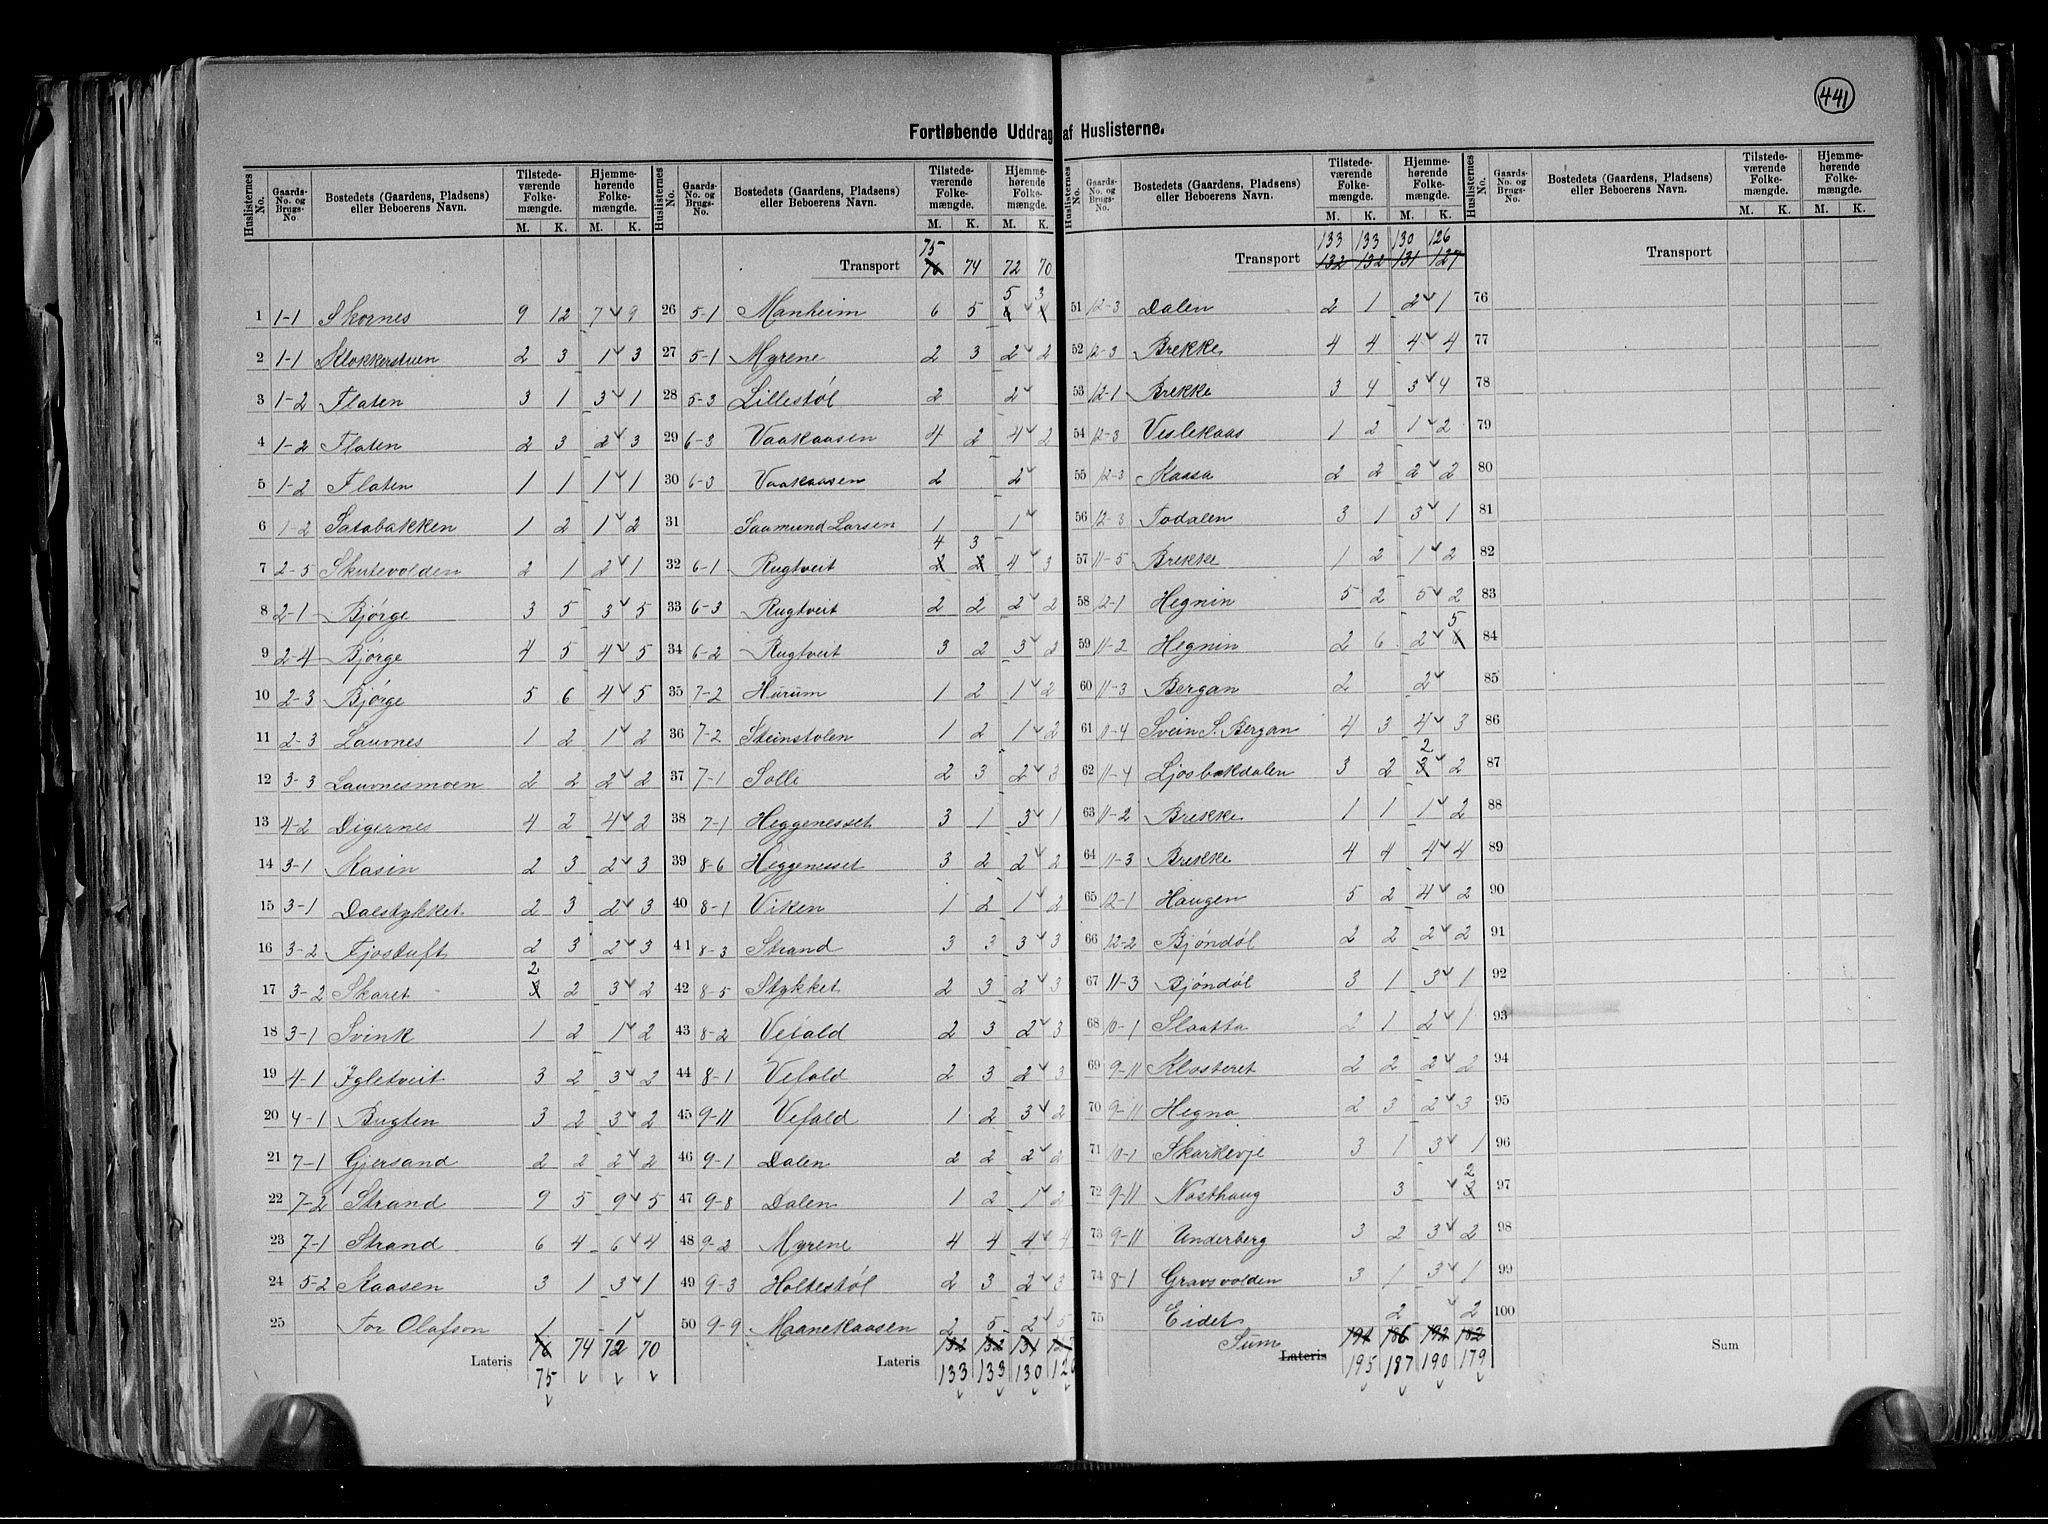 441
Fortløbende Uddrag af Huslisterne.
Huslisternes No. Gaards-No. og Brugs-No Bostedets (Gaardens, Pladsens) eller Beboerens Navn. Tilstede-værende Folke-mængde. Hjemme-hørende Folke-mængde. M. K. M. K.
1 1-1 Skornes 9 12 7 9
2 1-1 Klokkerstuen 2 3 1 3
3 1-2 Flaten 3 1 3 1
4 1-2 Flaten 2 3 2 3
5 1-2 Flaten 1 1 1 1
6 1-2 Satabakken 1 2 1 2
7 2-5 Skutevolden 2 1 2 1
8 2-1 Bjørge 3 5 3 5
9 2-4 Bjørge 4 5 4 5
10 2-3 Bjørge 5 6 4 5
11 2-3 Lauvnes 1 2 1 2
12 3-3 Lauvnesmoen 2 2 2 2
13 4-2 Digernes 4 2 4 2
14 3-1 Kasin 2 3 2 3
15 3-1 Dalstykket 2 3 2 3
16 3-2 Fjostuft 2 3 2 3
17 3-2 Skaret 2 2 3 2
18 3-1 Svink 1 2 1 2
19 4-1 Igletveit 3 2 3 2
20 4-1 Bugten 3 2 3 2
21 7-1 Gjersand 2 2 2 2
22 7-2 Strand 9 5 9 5
23 7-1 Strand 6 4 6 4
24 5-2 Kaasen 3 1 3 1
25 Tor Olafson 1 1
Lateris 76 74 72 70
75
Huslisternes No. Gaards-No. og Brugs-No. Bostedets (Gaardens, Pladsens) eller Beboerens Navn. Tilstede-værende Folke-mængde. Hjemme-hørende Folke-mængde. M. K. M. K.
75
Transport 76 74 72 70
26 5-1 Manheim 6 5 5 3
27 5-1 Myrene 2 3 2 2
28 5-3 Lillestøl 2 2
29 6-3 Vaakaasen 4 2 4 2
30 6-3 Vaakaasen 2 2
31 Saamund Larsen 1 1
4 3
32 6-1 Rugtveit 2 2 4 3
33 6-3 Rugtveit 2 2 2 2
34 6-2 Rugtveit 3 2 3 2
35 7-2 Hurum 1 2 1 2
36 7-2 Steinstolen 1 2 1 2
37 7-1 Solli 2 3 2 3
38 7-1 Heggenesset 3 1 3 1
39 8-6 Heggenesset 3 2 2 2
40 8-1 Viken 1 2 1 2
41 8-3 Strand 3 3 3 3
42 8-5 Stykket 2 3 2 3
43 8-2 Vefald 2 3 2 3
44 8-1 Vefald 2 3 2 3
45 9-11 Vefald 1 2 3 2
46 9-1 Dalen 2 2 2 2
47 9-8 Dalen 1 2 1 2
48 9-2 Myrene 4 4 4 4
49 9-3 Holtestøl 2 3 2 3
50 9-9 Maanekaasen 2 5 2 5
Lateris 132 132 131
133 133 130
Huslisternes No. Gaards-No. og Brugs-No. Bostedets (Gaardens, Pladsens) eller Beboerens Navn. Tilstede-værende Folke-mængde. Hjemme-hørende Folke-mængde. M. K. M. K.
133 133 130 126
Transport 132 132 131 127
51 12-3 Dalen 2 1 2 1
52 12-3 Brekke 4 4 4 4
53 12-1 Brekke 3 4 3 4
54 12-3 Veslekaas 1 2 1 2
55 12-3 Kaasa 2 2 2 2
56 12-3 Todalen 3 1 3 1
57 11-5 Brekke 1 2 1 2
58 12-1 Hegnin 5 2 5 2
5
59 11-2 Hegnin 2 6 2 6
60 11-3 Bergan 2 2
61 11-4 Svein S. Bergan 4 3 4 3
2
62 11-4 Ljosbakdalen 3 2 3 2
63 11-2 Brekke 1 1 1 2
64 11-3 Brekke 4 4 4 4
65 12-1 Haugen 5 2 4 2
66 12-2 Bjøndøl 2 2 2 2
67 11-3 Bjøndøl 3 1 3 1
68 10-1 Slaatta 2 1 2 1
69 9-11 Klosteret 2 2 2 2
70 9-11 Hegna 2 3 2 3
71 10-1 Skarkevje 3 1 3 1
2
72 9-11 Nosthaug 3 3
73 9-11 Underberg 3 2 3 2
74 8-1 Gravsvolden 3 1 3 1
75 Eidet 2 2
Sum 194 186 192 182
Lateris 195 187 190 179
Huslisternes No. Gaards-No. og Brugs-No. Bostedets (Gaardens, Pladsens) eller Beboerens Navn. Tilstede-værende Folke-mængde. Hjemme-hørende Folke-mængde. M. K. M. K.
Transport
76
77
78
79
80
81
82
83
84
85
86
87
88
89
90
91
92
93
94
95
96
97
98
99
100
Sum